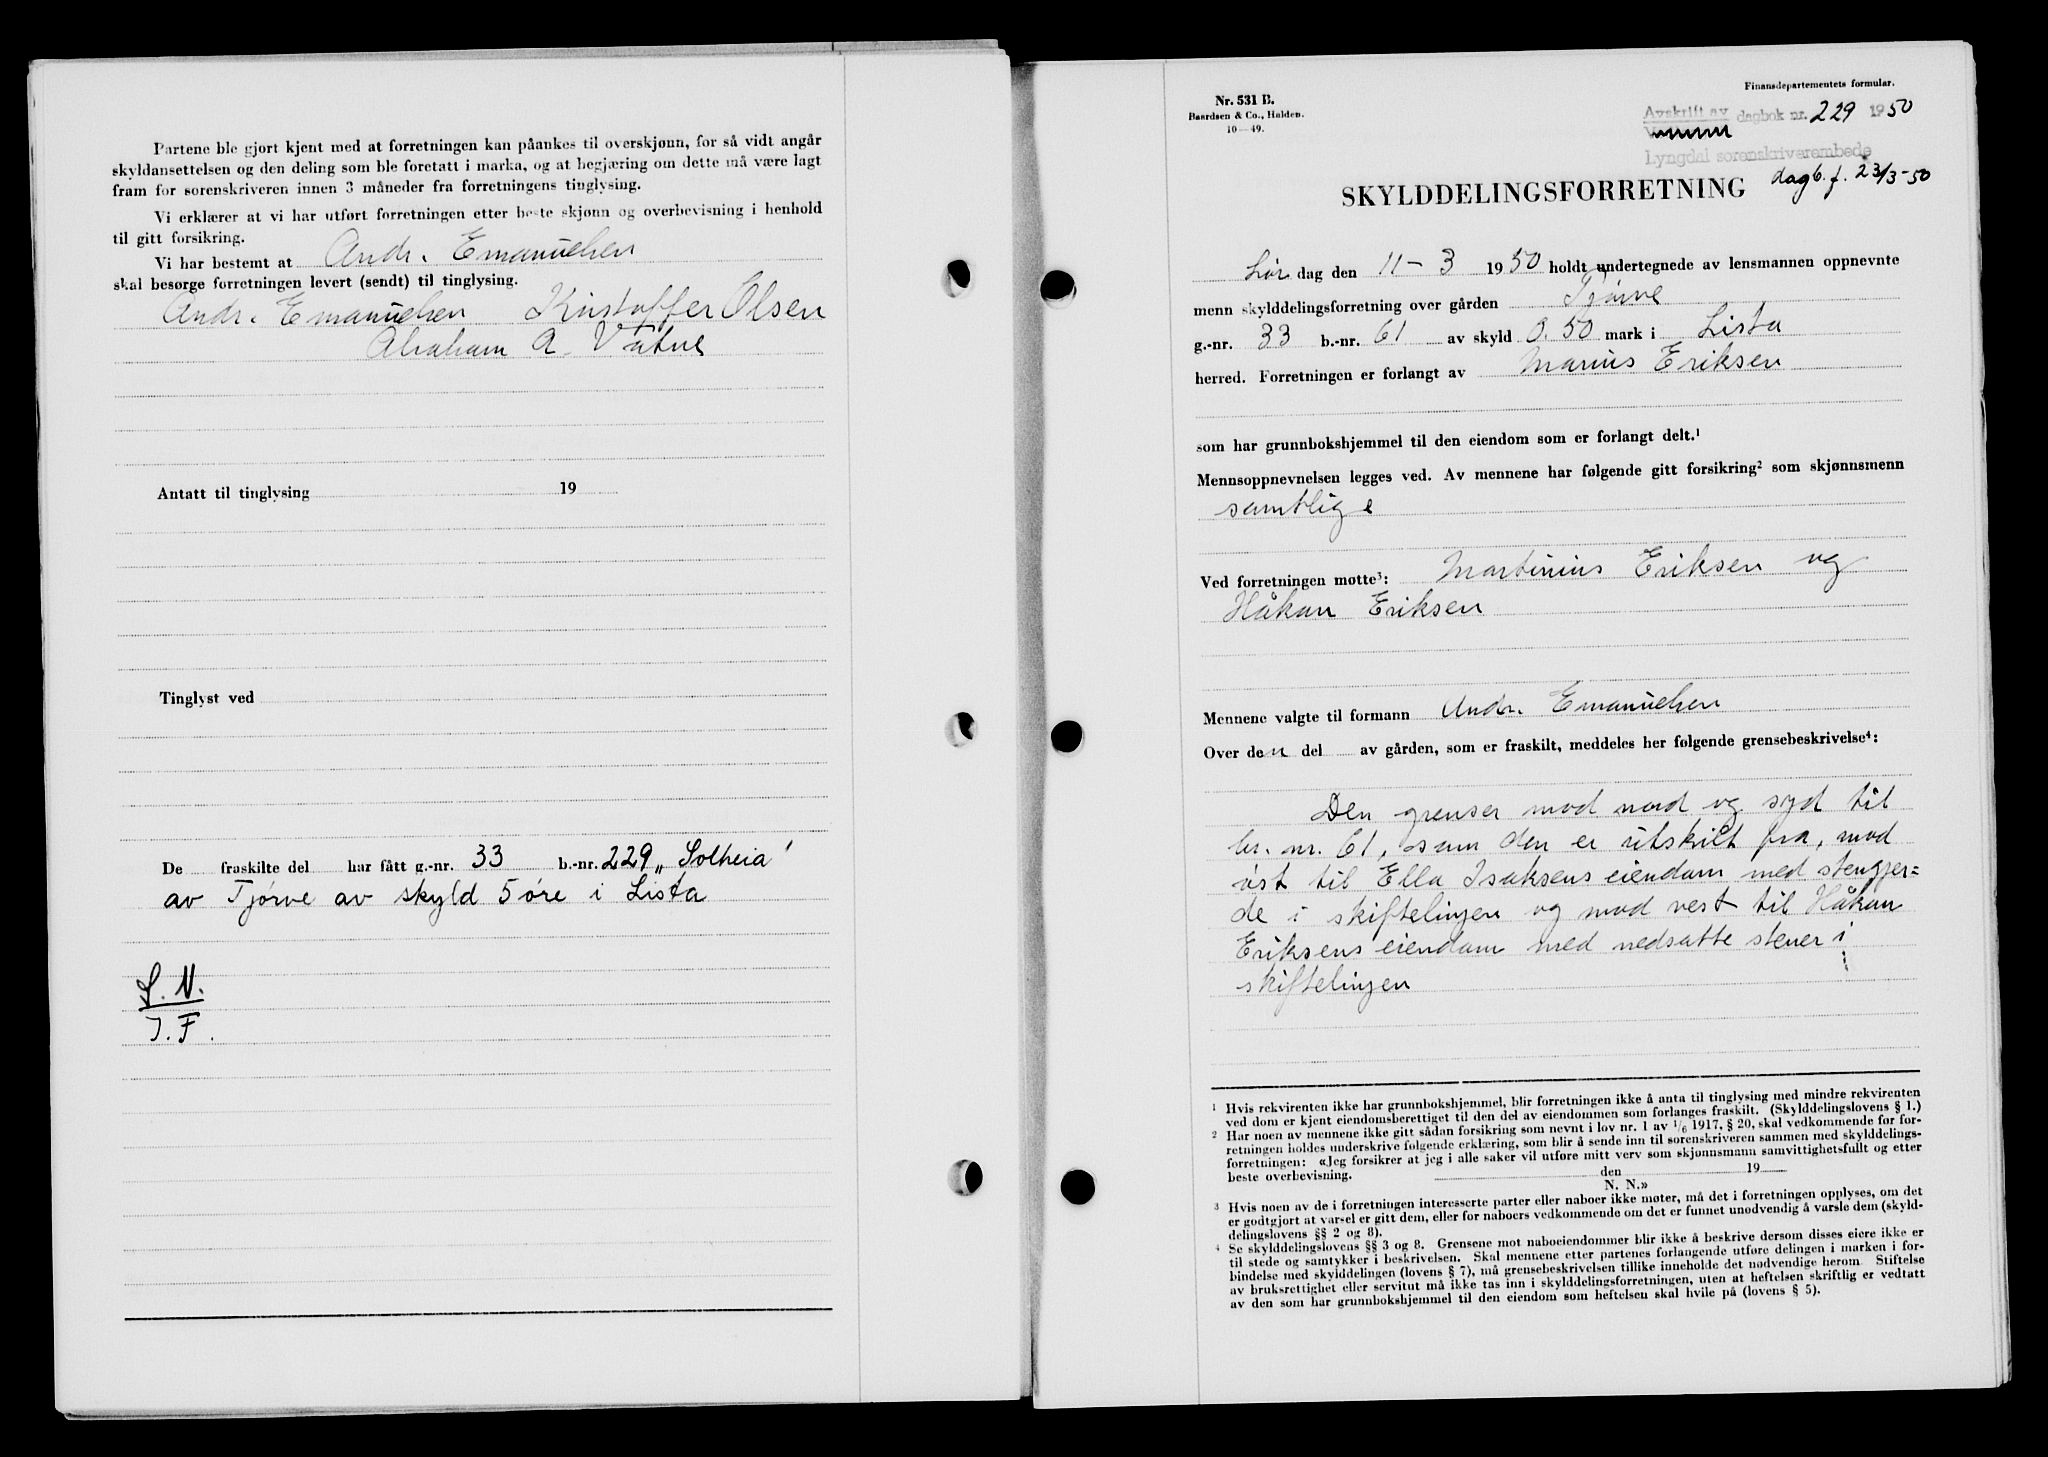 Partene ble gjort kjent med at forretningen kan påankes til overskjønn, for så vidt angår
skyldansettelsen og den deling som ble foretatt i marka, og at begjæring om dette må være lagt
fram for sorenskriveren innen 3 måneder fra forretningens tinglysing.
Vi erklærer at vi har utført forretningen etter beste skjønn og overbevisning i henhold
til gitt forsikring.
Vi har bestemt at Andr. Emanuelsen
skal besørge forretningen levert (sendt) til tinglysing.
Andr. Emanuelsen Kristoffer Olsen
Abraham A. Vatne
Antatt til tinglysing 19
Tinglyst ved
De fraskilte del har fått g.-nr. 33 b.-nr. 229 „Solheia"
av Tjørve av skyld 5 øre i Lista
S. N.
J. F.
Nr. 531 B.
Baardsen & Co., Halden.
10—49.
Finansdepartementets formular.
Avskrift av dagbok nr. 229 1950
Lyngdal sorenskriverembede
dagb. f. 23/3-50
SKYLDDELINGSFORRETNING
Lør dag den 11-3 1950 holdt undertegnede av lensmannen oppnevnte
menn skylddelingsforretning over gården Tjørve
g.-nr. 33 b.-nr. 61 av skyld 0.50 mark i Lista
herred. Forretningen er forlangt av Marius Eriksen
som har grunnbokshjemmel til den eiendom som er forlangt delt.¹
Mennsoppnevnelsen legges ved. Av mennene har følgende gitt forsikring² som skjønnsmenn
samtlige
Ved forretningen møtte³: Martinius Eriksen og
Håkan Eriksen
Mennene valgte til formann Andr. Emanuelsen
Over den del av gården, som er fraskilt, meddeles her følgende grensebeskrivelse⁴:
Den grenser mod nord og syd til
br. nr. 61, som den er utskilt fra, mod
øst til Ella Isaksens eiendom med stengjer=
de i skiftelinjen og mod vest til Håkan
Eriksens eiendom med nedsatte stener i
skiftelinjen
¹ Hvis rekvirenten ikke har grunnbokshjemmel, blir forretningen ikke å anta til tinglysing med mindre rekvirenten
ved dom er kjent eiendomsberettiget til den del av eiendommen som forlanges fraskilt. (Skylddelingslovens § 1.)
² Har noen av mennene ikke gitt sådan forsikring som nevnt i lov nr. 1 av 1/6 1917, § 20, skal vedkommende før for-
retningen holdes underskrive følgende erklæring, som blir å sende inn til sorenskriveren sammen med skylddelings-
forretningen: «Jeg forsikrer at jeg i alle saker vil utføre mitt verv som skjønnsmann samvittighetsfullt og etter
beste overbevisning. den 19
N. N.»
³ Hvis noen av de i forretningen interesserte parter eller naboer ikke møter, må det i forretningen opplyses, om det
er godtgjort at varsel er gitt dem, eller for naboers vedkommende om det er funnet unødvendig å varsle dem (skyld-
delingslovens §§ 2 og 8).
⁴ Se skylddelingslovens §§ 3 og 8. Grensene mot naboeiendommer blir ikke å beskrive dersom disses eiere ikke er
til stede og samtykker i beskrivelsen. Skal mennene etter partenes forlangende utføre delingen i marken i for-
bindelse med skylddelingen (lovens § 7), må grensebeskrivelsen tillike inneholde det nødvendige herom. Stiftelse
av bruksrettighet eller servitut må ikke tas inn i skylddelingsforretningen, uten at heftelsen skriftlig er vedtatt
av den som har grunnbokshjemmel til den eiendom som heftelsen skal hvile på (lovens § 5).